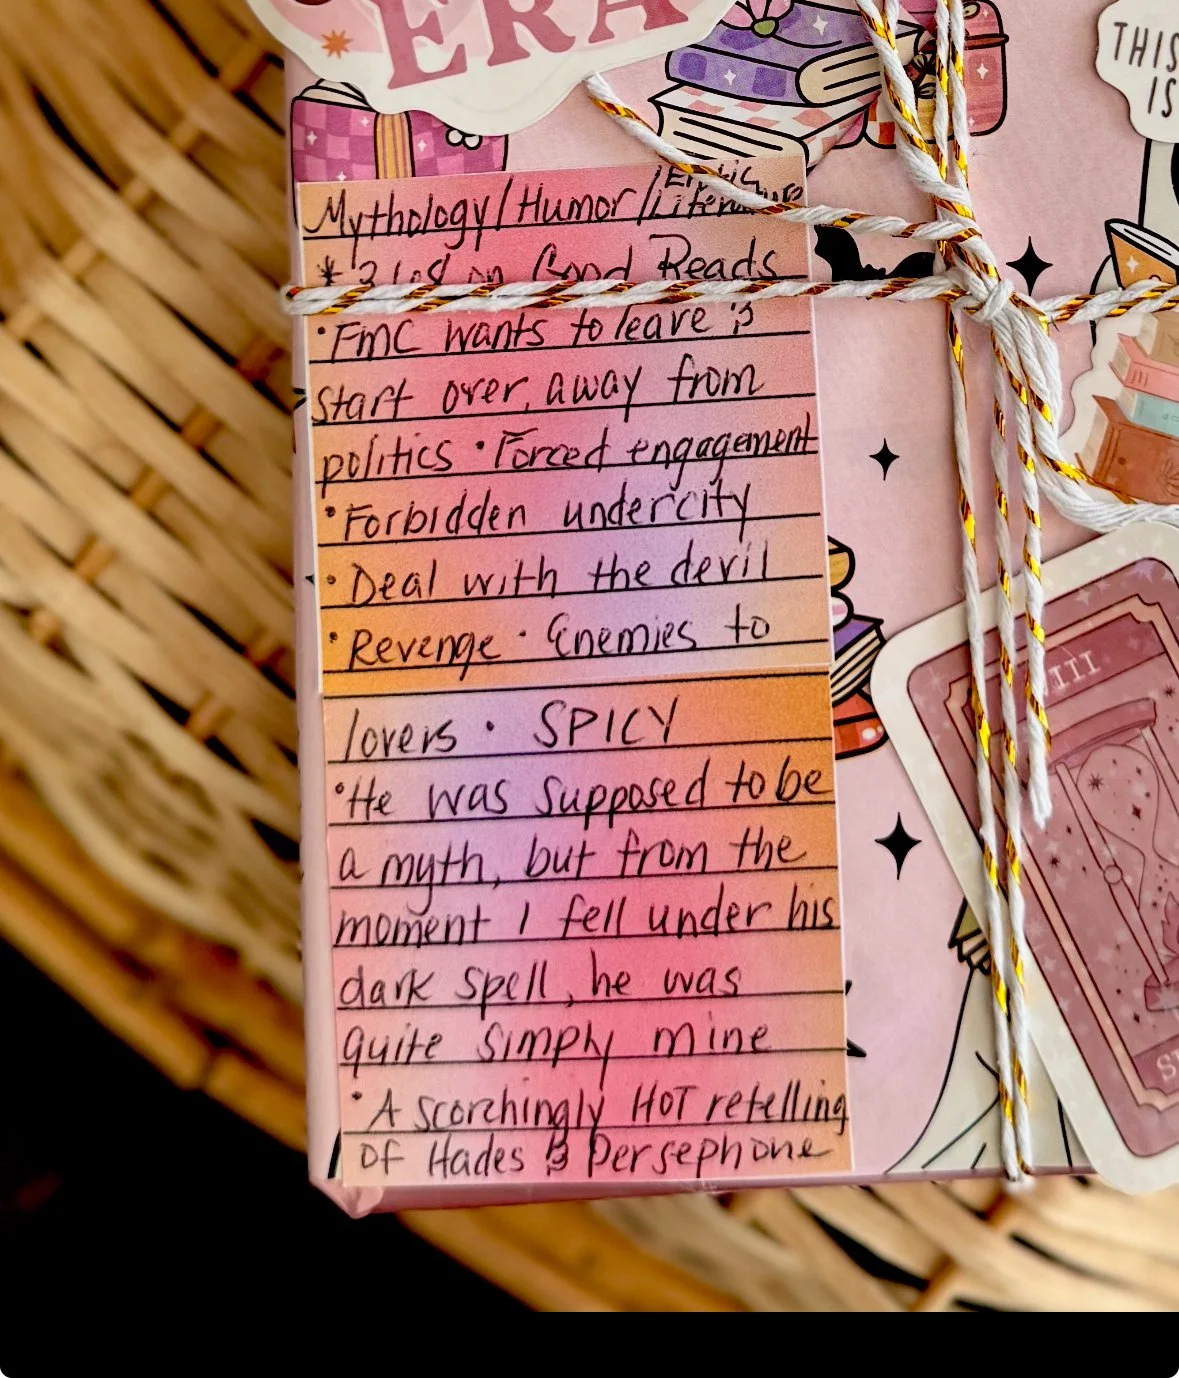 ERA
THIS
IS
Mythology/Humor/Erotic
Literature
* 3 lod on Good Reads
•FMC wants to leave &
start over, away from
politics • Forced engagement
•Forbidden undercity
•Deal with the devil
•Revenge • Enemies to
lovers • SPICY
•He was supposed to be
a myth, but from the
moment I fell under his
dark spell, he was
quite simply mine
•A scorchingly HOT retelling
of Hades & Persephone
III